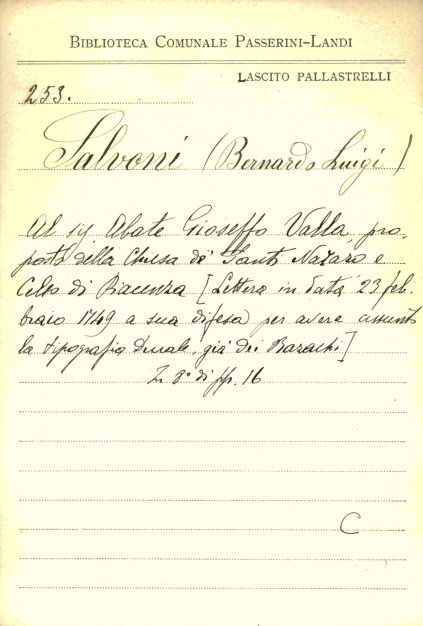 BIBLIOTECA COMUNALE PASSERINI-LANDI
LASCITO PALLASTRELLI
253.
Salvoni (Bernardo Luigi)
Al sig Abate Gioseffo Valla, pro-
posto della Chiesa di Santi Nazaro e
Celso di Piacenza [Lettera in data 23 feb-
braio 1749 a sua difesa per avere assunto
la tipografia Ducale, già dei Bazachi]
In 8° di pp. 16
C